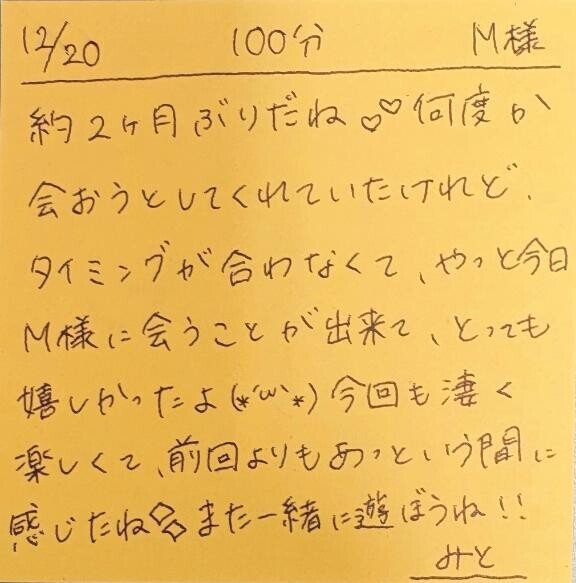 12/20 100分 M様
約2ヶ月ぶりだね♡♡何度か
会おうとしてくれていたけれど、
タイミングが合わなくて、やっと今日
M様に会うことが出来て、とっても
嬉しかったよ(*´ω`*)今回も凄く
楽しくて、前回よりもあっという間に
感じたね◇◇また一緒に遊ぼうね!!
みと